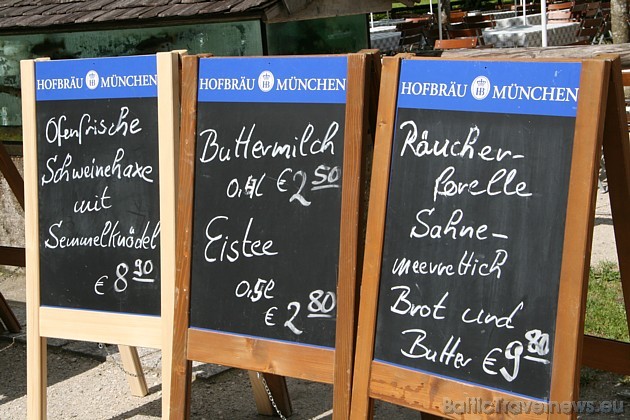 HOFBRÄU HB MÜNCHEN
Ofenfrische
Schweinehaxe
mit
Semmelknödel
€ 8 90
HOFBRÄU HB MÜNCHEN
Buttermilch
0,5l € 2 50
Eistee
0,5l
€ 2 80
HOFBRÄU HB MÜNCHEN
Räucher-
forelle
Sahne-
meerrettich
Brot und
Butter € 9 80
BalticTravelnews.eu